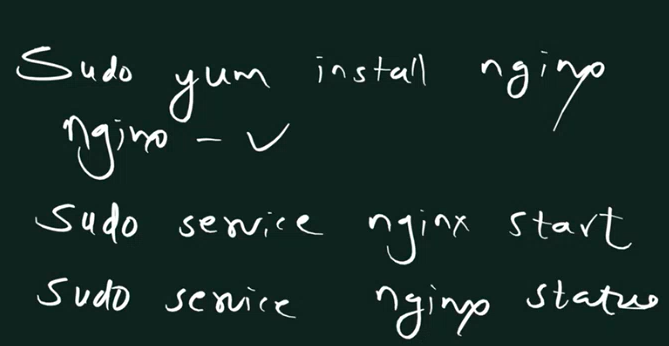 Sudo yum install nginx
nginx - v
Sudo service nginx start
Sudo service nginx status